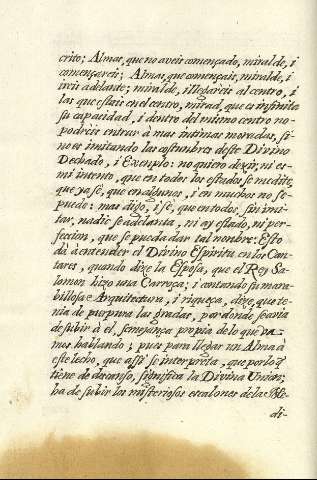 crito; Almas, que no aveis començado, miralde, i
començareis; Almas, que començais, miralde, i
ireis adelante; miralde, i llegareis al centro, i
las que estais en el centro, mirad, que es infinita
su capacidad, i dentro del mismo centro no
podreis entrar à mas intimas moradas, si
no es imitando las costumbres deste Divino
Dechado, i Exemplo: no quiero dezir, ni es
mi intento, que en todos los estados se medite,
que ya sè, que en algunos, i en muchos no se
puede: mas digo, i sè, que en todos, sin imi-
tar, nadie se adelanta, ni ay estado, ni per-
feccion, que se pueda dar tal nombre: Esto
dà à entender el Divino Espiritu en los Can-
tares, quando dize la Esposa, que el Rey Sa-
lomon hizo una Carroça; i contando su mara-
billosa Arquitectura, i riqueça, dize, que te-
nia de purpura las gradas, por donde se avia
de subir à èl, semejança propia de lo que va-
mos hablando; pues para llegar un Alma à
este lecho, que assi se interpreta, que por lo q̃
tiene de descanso, significa la Divina Union;
ha de subir los misteriosos escalones de la Me-
di-